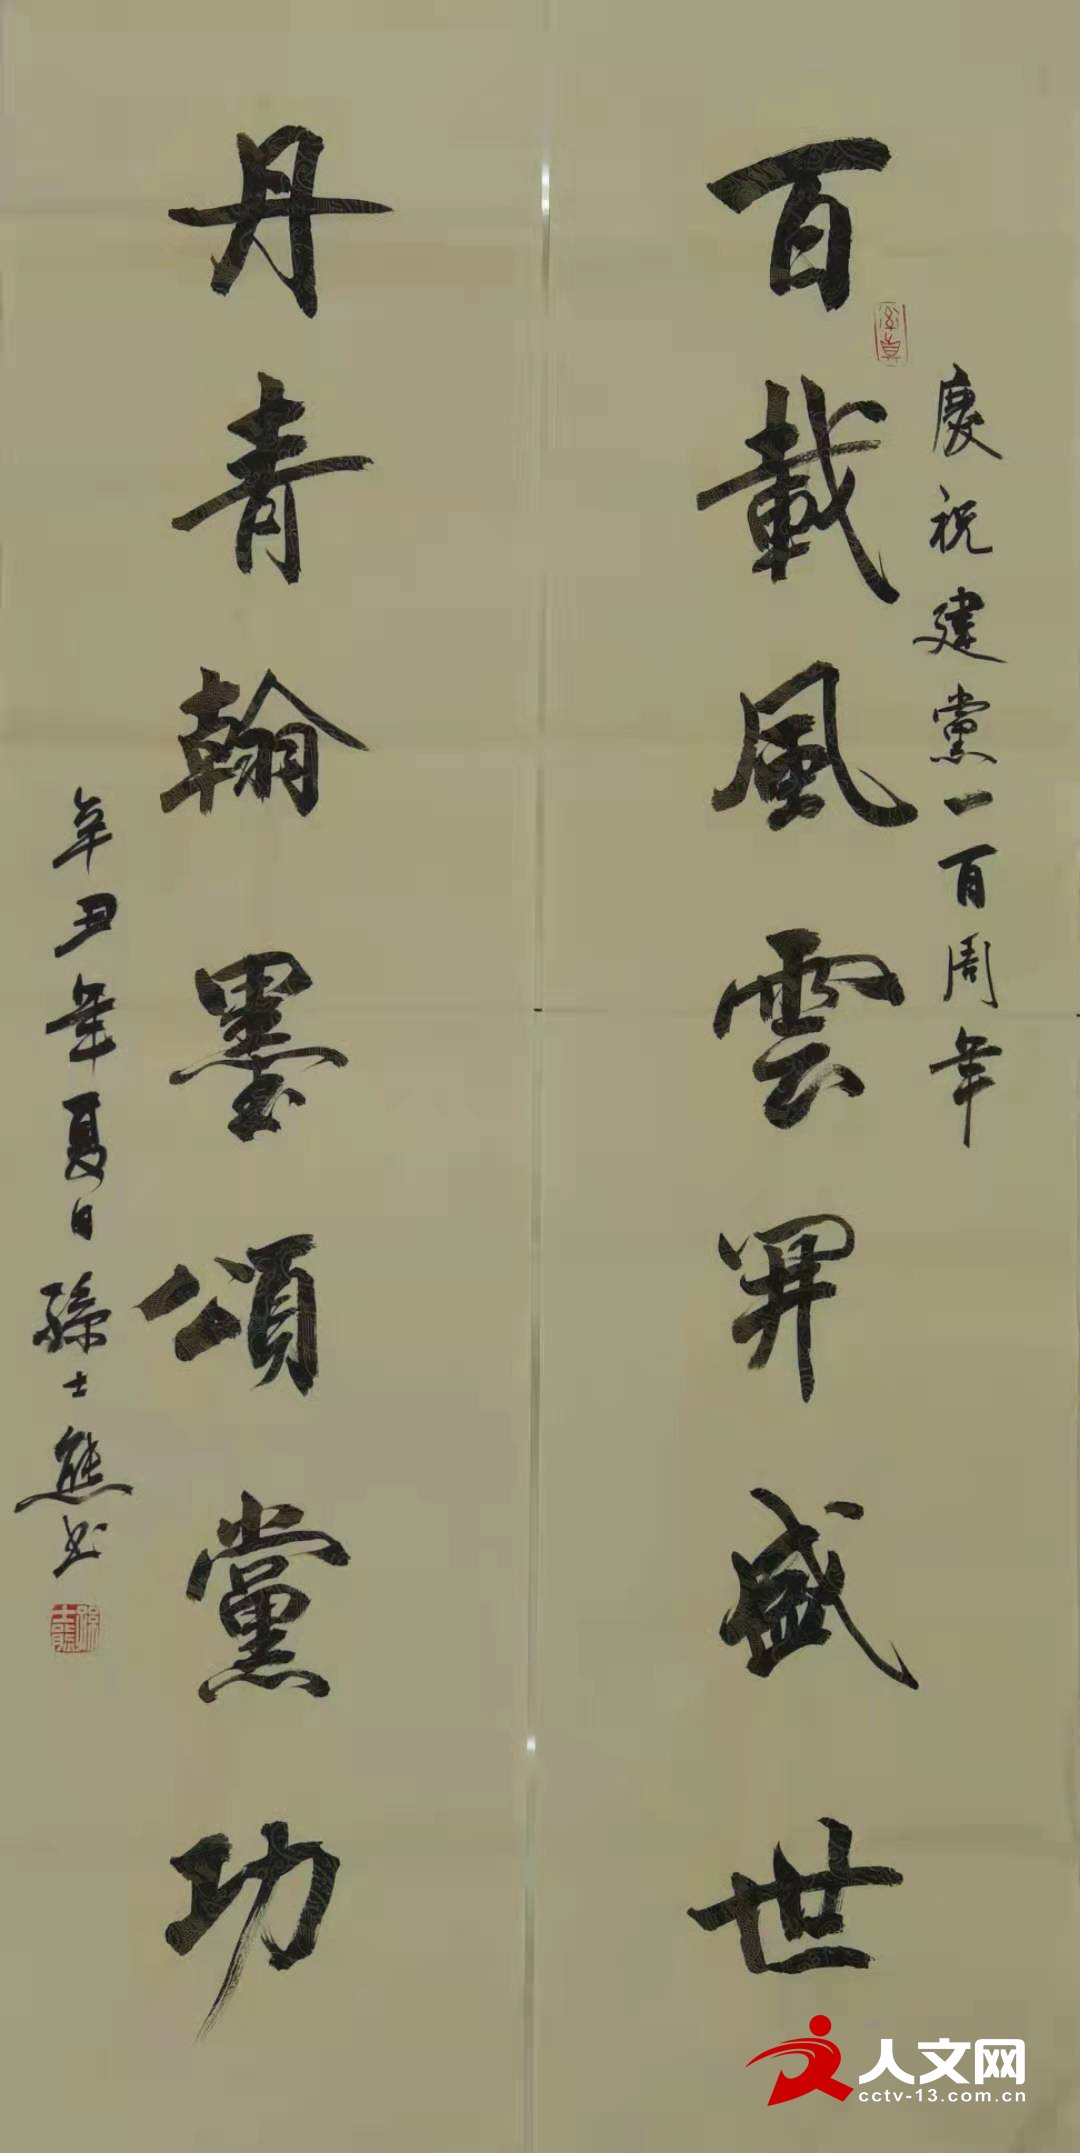 慶祝建黨一百周年
百載風雲開盛世
丹青翰墨頌黨功
辛丑年夏日孫士熊书
孫士熊
人文网
cctv-13.com.cn